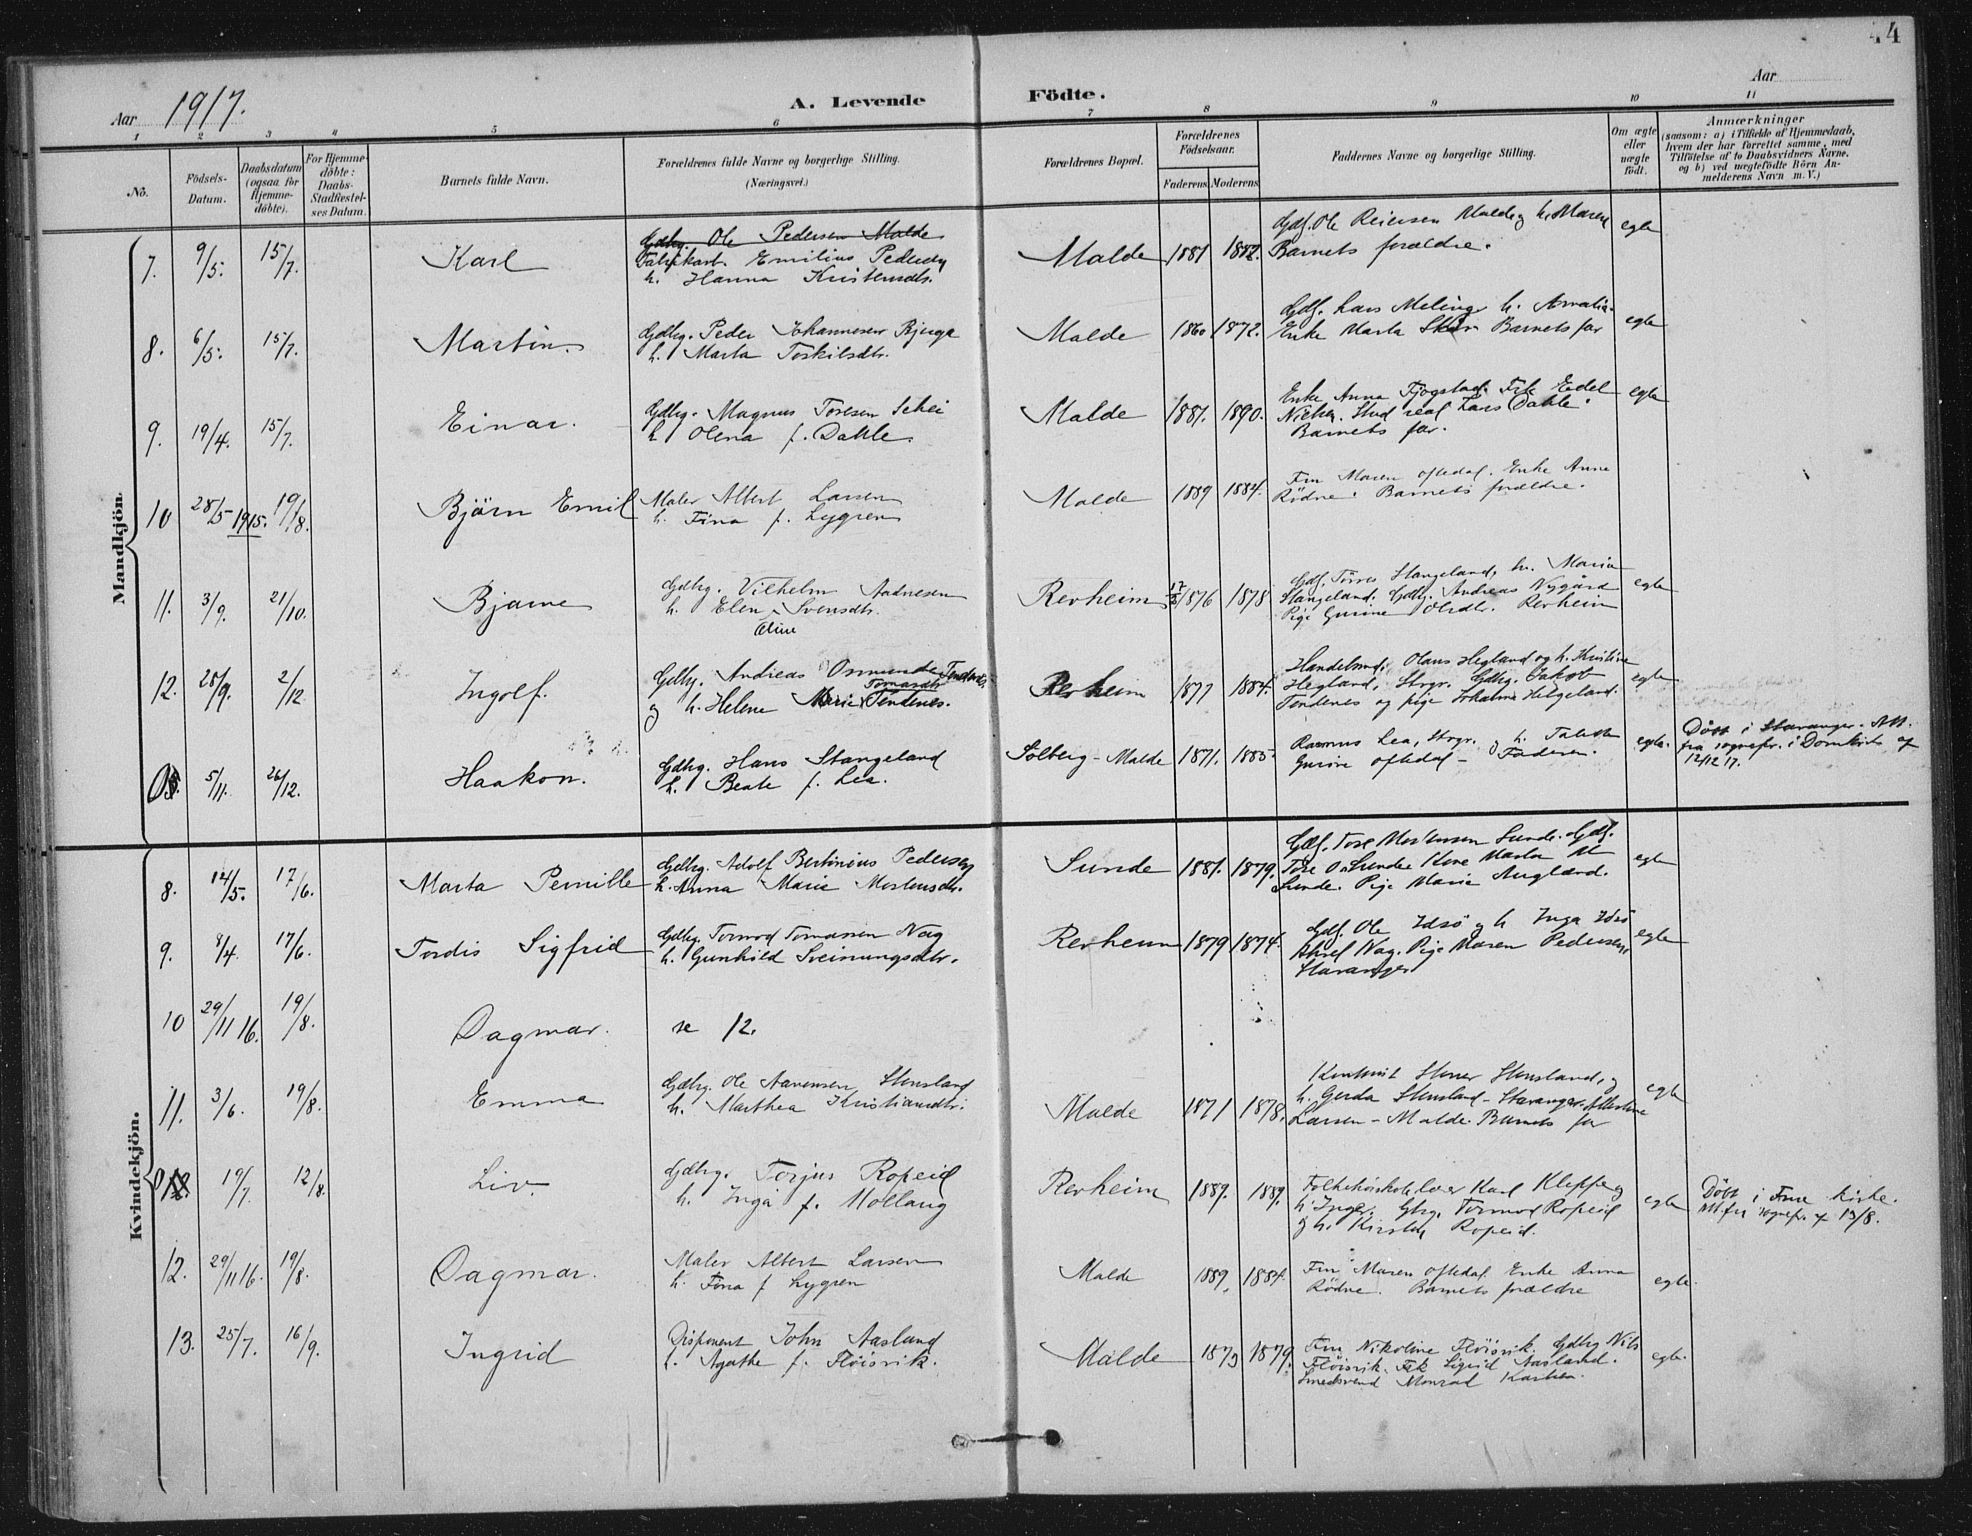 44
Aar 1917.
A. Levende Födte.
Aar
1 2 3 4 5 6 7 8 9 10 11
Nö.
Födsels-Datum.
Daabsdatum (ogsaa for Hjemmedöbte).
For Hjemmedöbte: Daabs-Stadfæstelses Datum.
Barnets fulde Navn.
Forældrenes fulde Navne og borgerlige Stilling. (Næringsvei.)
Forældrenes Bopæl.
Forældrenes Födselsaar.
Faderens Moderens
Faddernes Navne og borgerlige Stilling.
Om ægte eller uægte födt.
Anmærkninger (saasom: a) i Tilfælde af Hjemmedaab, hvem der har forrettet samme, med Tilföielse af to Daabsvidners Navne. og b) ved uægtefödte Börn Anmelderens Navn m. V.)
Mandkjön.
7. 9/5. 15/7. Karl
Gdbg. Ole Pedersen Malde
Fabrikarb. Emilius Pedersen
h. Hanna Kristensdtr.
Malde 1881 1882.
Gdbf. Ole Reiersen Malde og h. Maren
Barnets forældre.
egte
8. 6/5. 15/7. Martin.
Gdbrg. Peder Johannesen Bjerga
h. Marta Toskilsdtr.
Malde 1860 1872.
Gdbf. Lars Meling h. Amalia.
Enke Marta Skår Barnets far
egte
9. 19/4. 15/7. Einar.
Gdbrg. Magnus Toresen Schei
h. Olena f. Dahle
Malde 1881. 1890.
Enke Anna Fjogstad. Frk Eedel
Nielsen. Stud real Lars Dahle.
Barnets far.
egte
10 28/5 1915. 19/8. Björn Emil
Maler Albert Larsen
h. Fina f. Lygren
Malde 1889 1884.
Fru Maren Oftedal. Enke Anna
Rödne. Barnets forældre.
11. 3/9. 21/10. Bjarne
Gdbrg. Vilhelm Aadnesen
h. Elen Svensdtr.
Oline
Revheim 17/2 1876 1878
Gdbf. Törres Stangeland, hr. Maria
Stangeland. Gdbg. Andreas Nygård
Pige Gurine Olsdtr. Revheim
egte
12. 28/9. 2/12. Ingolf.
Gdbg. Andreas Osmundsen Tendenes.
Tomasdtr
og h. Helene Marie Tendenes.
Revheim 1877 1884.
Handelsmd. Olaus Hegland og h. Kristine
Hegland, Stvgr. Gdbg. Jakob
Tendenes og pige Johanne Helgeland.
egte
5/11. 26/12. Haakon.
Gdbrg. Hans Stangeland
h. Beate f. Lea.
Solberg - Malde 1871. 1885
Rasmus Lea, Stvgr. og h. Tabitha
Gurine Oftedal - Faderen.
egte.
Döbt i Stavanger. Att.
fra sognepr. i Domkirk. af
12/12 17.
Kvindekjön.
8. 14/5. 17/6. Marta Pernille
Gdbrg. Adolf Bertinius Pedersen
h. Anna Marie Mortensdtr.
Sunde 1881. 1879.
Gdbf. Tore Mortensen Sunde. Gdbf.
Tore O. Sunde Kone Marta M
Sunde. Pige Marie Auglænd.
egte
9. 8/4. 17/6. Tordis Sigfrid
Gdbrg. Tormod Tomassen Nag
h. Gunhild Sveinungsdtr.
Revheim 1879 1874.
Gdbf. Ole Idsö og h Inga Idsö
Aksel Nag. Pige Maren Pedersen,
Stavanger
egte
10 29/11 16. 19/8. Dagmar.
se 12.
11. 3/6. 19/8. Emma
Gdbrg. Ole Aanensen Stensland
h. Marthea Kristiansdtr.
Malde 1871 1878.
Stener Stensland, og
h. Gerda Stensland - Stavanger.
Larsen - Malde. Barnets far
egte
19/7. 12/8. Liv.
Gdbrg. Torjus Ropeid
h. Inga f. Molland
Revheim 1889. 1889.
Folkehöiskolelærer Karl Kleppe og
h. Inger. Gbrg. Tormod Ropeid
og h. Kirsten Ropeid.
egte
Döbt i Frue kirke.
Att. fra sognepr. af 13/8.
12. 29/11 16. 19/8. Dagmar.
Maler Albert Larsen
h. Fina f Lygren
Malde 1889. 1884.
Fru Maren Oftedal. Enke Anna
Rödne. Barnets forældre
egte
13. 25/7. 16/9. Ingrid
Disponent John Aasland
h. Agathe f. Flöisvik.
Malde 1873 1879.
Fru Nikoline Flöisvik. Gdbrg Nils
Flöisvik. Frk Sigrid Aasland.
Smedsvend Monrad
egte.